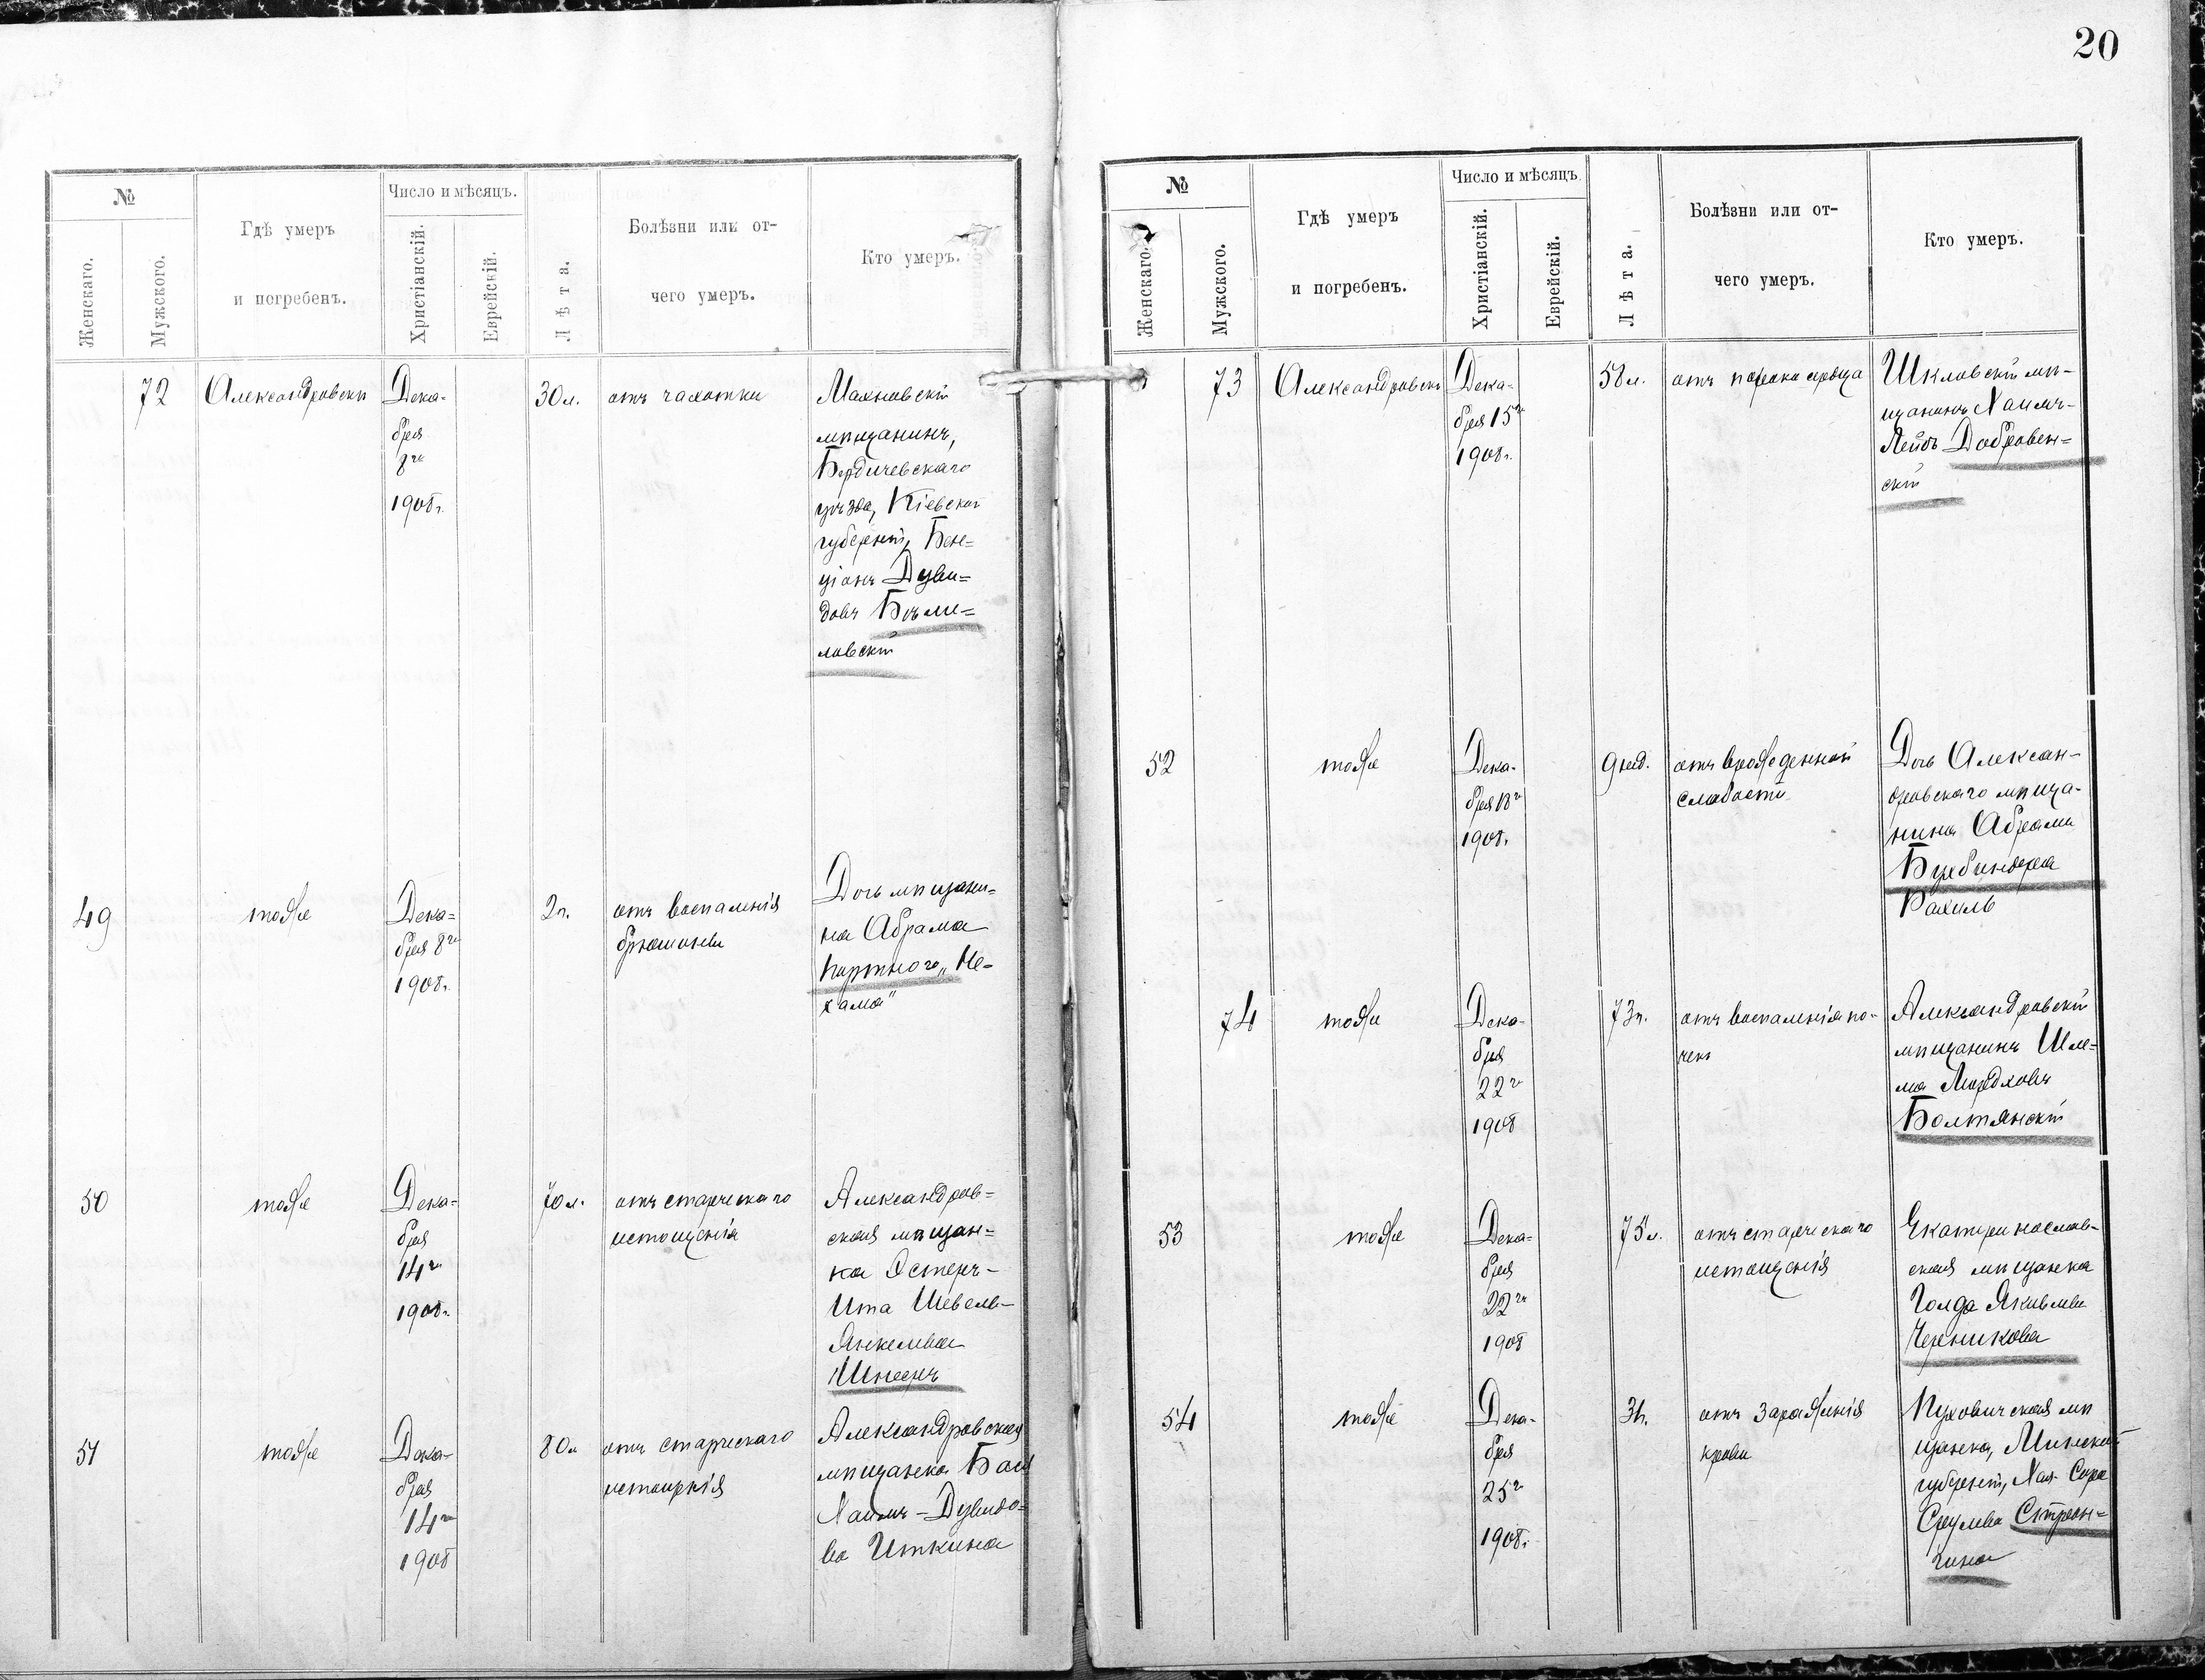 20
№
Женскаго.
Мужского.
Гдѣ умеръ
и погребенъ.
Число и мѣсяцъ.
Христіанскій.
Еврейскій.
Лѣта.
Болѣзни или от-
чего умеръ.
Кто умеръ.
72
Александровскъ
Дека-
бря
8го
1908г.
30л.
отъ чахотки
Махновскій
мѣщанинъ,
Бердичевскаго
уѣзда, Кіевской
губерніи, Бен-
ціонъ Дуви-
довъ Бѣли-
ловскій
49
тоже
Дека=
бря 8го
1908г.
2г.
отъ воспаленія
брюшины
Дочь мѣщани=
на Абрама
Портного „Не-
хама"
50
тоже
Дека=
бря
14го
1908г.
70л.
отъ старческаго
истощенія
Александров=
ская мѣщан=
ка Эстеръ-
Ита Шевель-
Янкелева
Шнееръ
51
тоже
Дека-
бря
14го
1908
80л
отъ старческаго
истощенія
Александровская
мѣщанка Бася
Хаимъ-Дувидо=
ва Иткина
№
Женскаго.
Мужского.
Гдѣ умеръ
и погребенъ.
Число и мѣсяцъ
Христіанскій.
Еврейскій.
Лѣта.
Болѣзни или от-
чего умеръ.
Кто умеръ.
73
Александровскъ
Дека=
бря 15го
1908г.
58л.
отъ порока сердца
Шкловскій мѣ-
щанинъ Хаимъ-
Лейбъ Добровен=
скій
52
тоже
Дека-
бря 18го
1908г.
9 нед.
отъ врожденной
слабости
Дочь Алексан-
дровскаго мѣща-
нина Абрама
Бухбиндера
Рахиль
74
тоже
Дека-
бря
22го
1908
73г.
отъ воспаленія по-
чекъ
Александровскій
мѣщанинъ Шле=
ма Мордховъ
Болтянскій
53
тоже
Дека=
бря
22го
1908
75л.
отъ старческаго
истощенія
Екатеринослав-
ская мѣщанка
Голда Яковлева
Черникова
54
тоже
Дека-
бря
25го
1908г.
3г.
отъ зараженія
крови
Пуховичская мѣ
щанка, Минской
губерніи, Хая-Сора
Срулева Строн=
гина